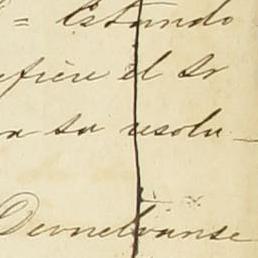 = Estando
efiere el Sr
a su resolu-
Devuelvanse